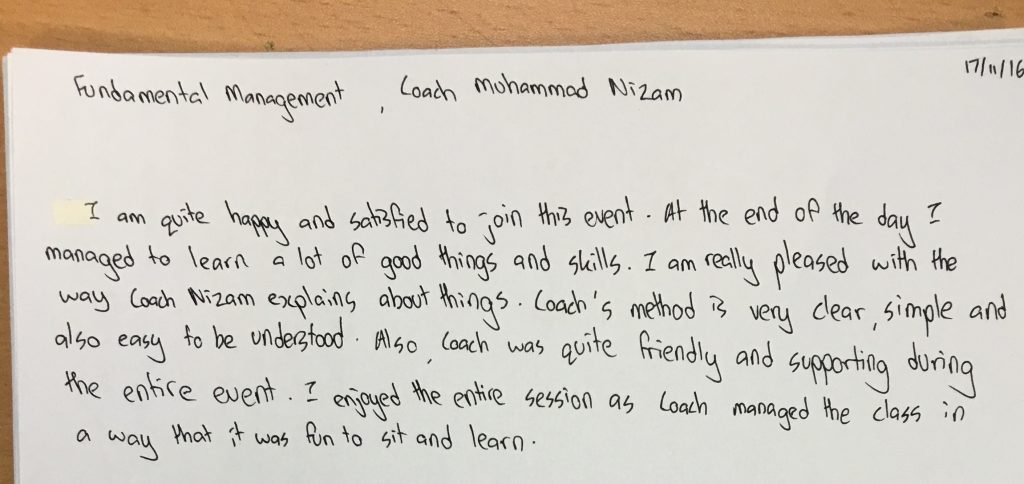 17/11/16
Fundamental Management , Coach Mohammad Nizam
I am quite happy and satisfied to join this event. At the end of the day I
managed to learn a lot of good things and skills. I am really pleased with the
way Coach Nizam explains about things. Coach's method is very clear, simple and
also easy to be understood. Also, Coach was quite friendly and supporting during
the entire event. I enjoyed the entire session as Coach managed the class in
a way that it was fun to sit and learn.